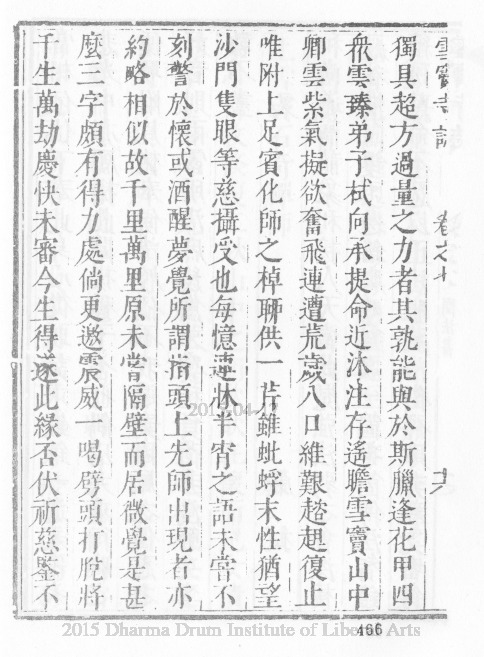 雪竇寺誌
卷之十
獨具超方過量之力者其孰能與於斯臘逢花甲四
衆雲臻弟子栻向承提命近沐注存遙瞻雪竇山中
卿雲紫氣擬欲奮飛連遭荒歲八口維艱趑趄復止
唯附上足賓化師之棹聊供一片雖蚍蜉末性猶望
沙門隻眼等慈攝受也每憶連牀半宵之語未嘗不
刻警於懷或酒醒夢覺所謂指頭上先師出現者亦
約略相似故千里萬里原未嘗隔壁而居微覺是甚
麼三字頗有得力處倘更邀震威一喝劈頭打脫將
千生萬劫慶快未審今生得遂此緣否伏祈慈鑒不
466
2015 Dharma Drum Institute of Liberal Arts